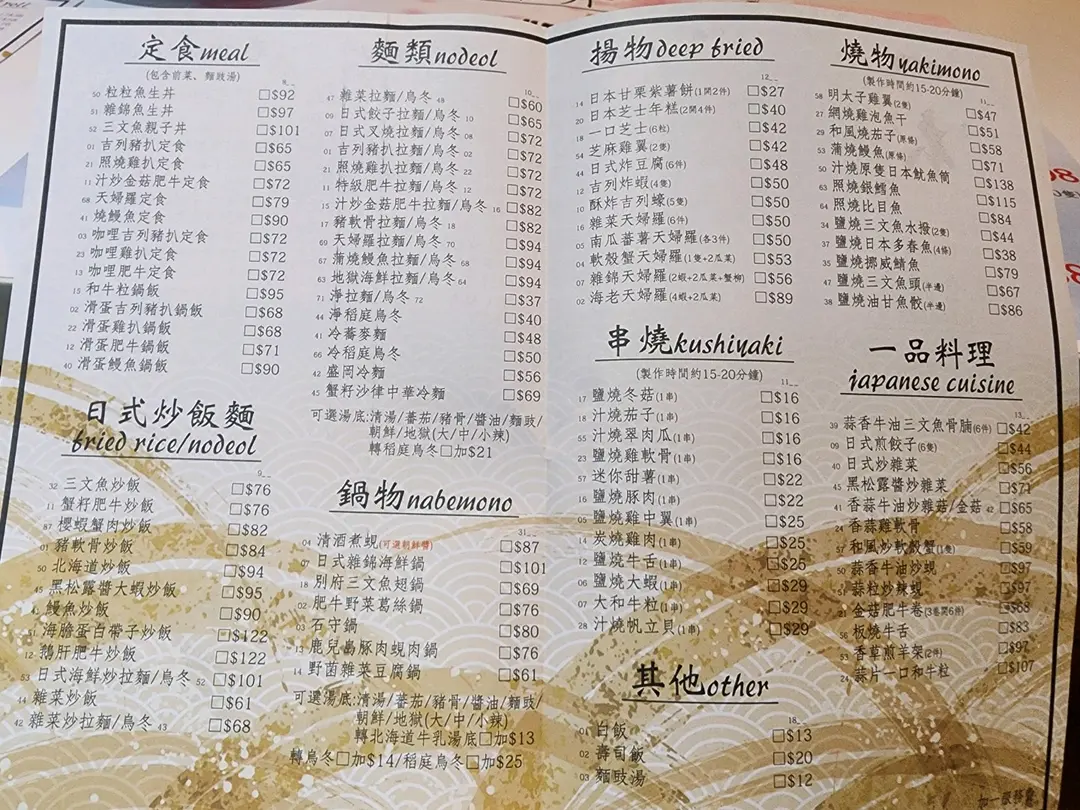 定食meal
(包含前菜、麵豉湯)
8__
50 粒粒魚生丼 □$92
51 雜錦魚生丼 □$97
52 三文魚親子丼 □$101
01 吉列豬扒定食 □$65
21 照燒雞扒定食 □$65
11 汁炒金菇肥牛定食 □$72
68 天婦羅定食 □$79
41 燒鰻魚定食 □$90
03 咖哩吉列豬扒定食 □$72
23 咖哩雞扒定食 □$72
13 咖哩肥牛定食 □$72
15 和牛粒鍋飯 □$95
02 滑蛋吉列豬扒鍋飯 □$68
22 滑蛋雞扒鍋飯 □$68
12 滑蛋肥牛鍋飯 □$71
40 滑蛋鰻魚鍋飯 □$90
日式炒飯麵
fried rice/nodeol
9__
32 三文魚炒飯 □$76
11 蟹籽肥牛炒飯 □$76
87 櫻蝦蟹肉炒飯 □$82
01 豬軟骨炒飯 □$84
50 北海道炒飯 □$94
45 黑松露醬大蝦炒飯 □$95
41 鰻魚炒飯 □$90
51 海膽蛋白帶子炒飯 □$122
12 鵝肝肥牛炒飯 □$122
53 日式海鮮炒拉麵/烏冬 52 □$101
44 雜菜炒飯 □$61
42 雜菜炒拉麵/烏冬 43 □$68
麵類nodeol
10__
47 雜菜拉麵/烏冬 48 □$60
09 日式餃子拉麵/烏冬 10 □$65
07 日式叉燒拉麵/烏冬 08 □$72
01 吉列豬扒拉麵/烏冬 02 □$72
21 照燒雞扒拉麵/烏冬 22 □$72
11 特級肥牛拉麵/烏冬 12 □$72
15 汁炒金菇肥牛拉麵/烏冬 16 □$82
17 豬軟骨拉麵/烏冬 18 □$82
69 天婦羅拉麵/烏冬 70 □$94
67 蒲燒鰻魚拉麵/烏冬 68 □$94
63 地獄海鮮拉麵/烏冬 64 □$94
71 淨拉麵/烏冬 72 □$37
44 淨稻庭烏冬 □$40
41 冷蕎麥麵 □$48
66 冷稻庭烏冬 □$50
42 盛岡冷麵 □$56
45 蟹籽沙律中華冷麵 □$69
可選湯底:清湯/蕃茄/豬骨/醬油/麵豉/
朝鮮/地獄(大/中/小辣)
轉稻庭烏冬□加$21
鍋物nabemono
31__
04 清酒煮蜆(可選朝鮮醬) □$87
07 日式雜錦海鮮鍋 □$101
18 別府三文魚翅鍋 □$69
02 肥牛野菜葛絲鍋 □$76
03 石守鍋 □$80
13 鹿兒島豚肉蜆肉鍋 □$76
14 野菌雜菜豆腐鍋 □$61
可選湯底:清湯/蕃茄/豬骨/醬油/麵豉/
朝鮮/地獄(大/中/小辣)
轉北海道牛乳湯底□加$13
轉烏冬□加$14/稻庭烏冬□加$25
揚物deep fried
12__
14 日本甘栗紫薯餅(1開2件) □$27
20 日本芝士年糕(2開4件) □$40
18 一口芝士(6粒) □$42
54 芝麻雞翼(2隻) □$42
44 日式炸豆腐(6件) □$48
12 吉列炸蝦(4隻) □$50
10 酥炸吉列蠔(5隻) □$50
16 雜菜天婦羅(6件) □$50
05 南瓜蕃薯天婦羅(各3件) □$50
04 軟殼蟹天婦羅(1隻+2瓜菜) □$53
07 雜錦天婦羅(2蝦+2瓜菜+蟹柳) □$56
02 海老天婦羅(4蝦+2瓜菜) □$89
串燒kushiyaki
(製作時間約15-20分鐘)
11__
17 鹽燒冬菇(1串) □$16
18 汁燒茄子(1串) □$16
55 汁燒翠肉瓜(1串) □$16
23 鹽燒雞軟骨(1串) □$16
57 迷你甜薯(1串) □$22
16 鹽燒豚肉(1串) □$22
05 鹽燒雞中翼(1串) □$25
14 炭燒雞肉(1串) □$25
12 鹽燒牛舌(1串) □$25
06 鹽燒大蝦(1串) □$29
07 大和牛粒(1串) □$29
28 汁燒帆立貝(1串) □$29
其他other
18__
01 白飯 □$13
02 壽司飯 □$20
03 麵豉湯 □$12
燒物yakimono
(製作時間約15-20分鐘)
11__
58 明太子雞翼(2隻) □$47
27 網燒雞泡魚干 □$51
29 和風燒茄子(原條) □$58
53 蒲燒鰻魚(原條) □$71
50 汁燒原隻日本魷魚筒 □$138
63 照燒銀鱈魚 □$115
64 照燒比目魚 □$84
34 鹽燒三文魚水撥(2隻) □$44
37 鹽燒日本多春魚(4條) □$38
35 鹽燒挪威鯖魚 □$79
47 鹽燒三文魚頭(半邊) □$67
38 鹽燒油甘魚骹(半邊) □$86
一品料理
japanese cuisine
13__
39 蒜香牛油三文魚骨腩(6件) □$42
09 日式煎餃子(6隻) □$44
40 日式炒雜菜 □$56
45 黑松露醬炒雜菜 □$71
41 香蒜牛油炒雜菇/金菇 42 □$65
24 香蒜雞軟骨 □$58
57 和風炒軟殼蟹(1隻) □$59
50 蒜香牛油炒蜆 □$97
51 蒜粒炒辣蜆 □$97
21 金菇肥牛卷(3卷開6件) □$68
56 板燒牛舌 □$83
53 香草煎羊架(2件) □$97
24 蒜片一口和牛粒 □$107